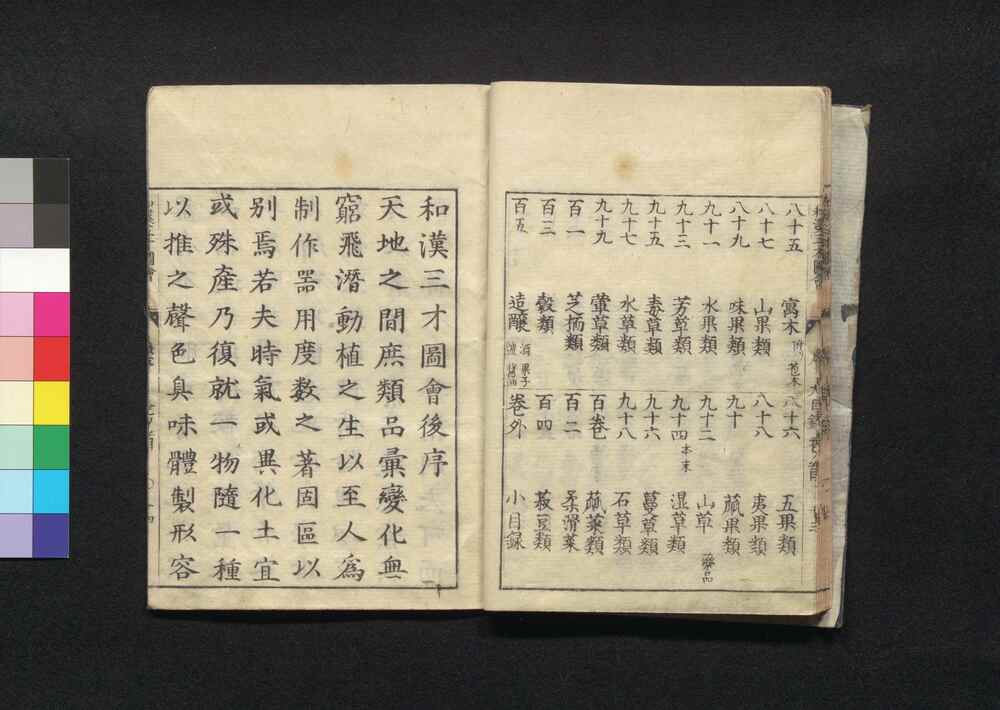 八十五 寓木 附 苞木 八十六 五果類
八十七 山果類 八十八 夷果類
八十九 味果類 九十 蓏果類
九十一 水果類 九十二 本末 山草
九十三 芳草類 九十四 湿草類
九十五 毒草類 九十六 蔓草類
九十七 水草類 九十八 石草類
九十九 葷草類 百巻 蓏菜類
百一 芝栭類 百二 柔滑菜
百三 穀類 百四 菽豆類
百五 造醸 巻外 小目録
和漢三才圖會後序
天地之間庶類品彙變化無
窮飛潛動植之生以至人爲
制作噐用度数之著固區以
别焉若夫時氣或異化土宜
或殊產乃復就一物隨一種
以推之聲色臭味體製形容